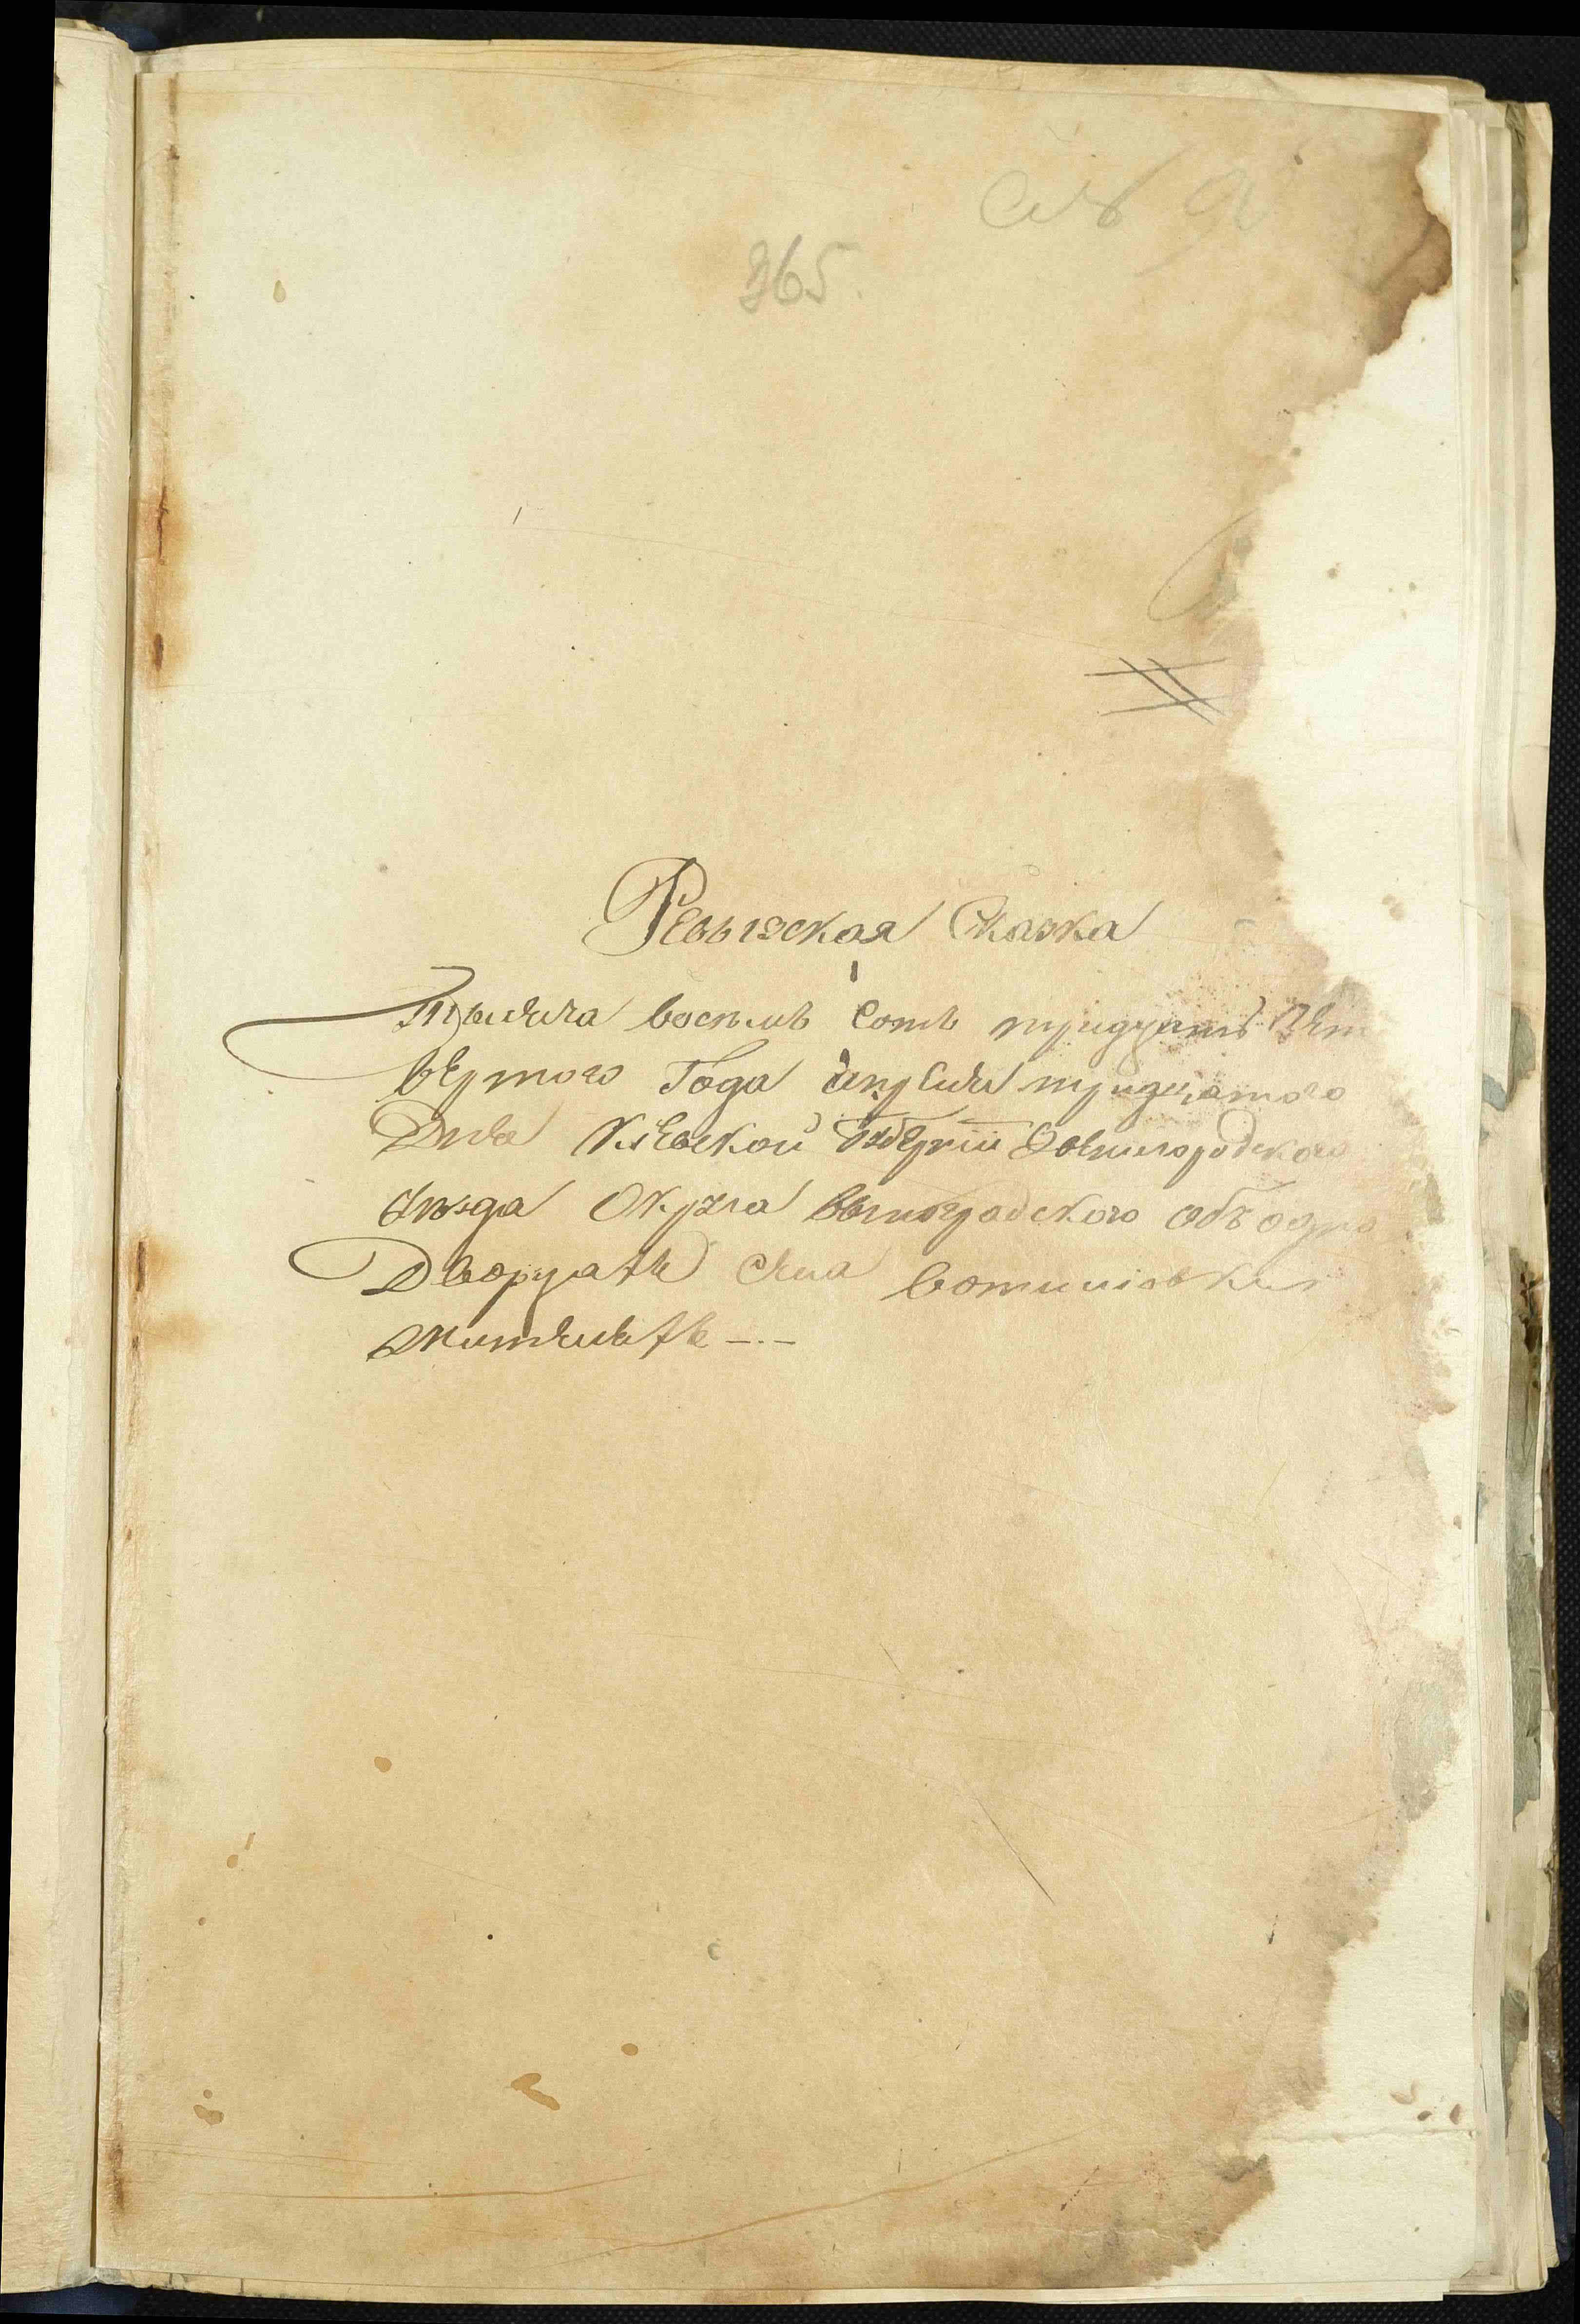 365.
Ревызская Сказка
Тысяча восемь сотъ тридцать Чет
вертого Года Апреля тридцатого
Дня Кіевской Губерніи Звенигородского
Уезда Округа Вынограбского объ одно
Дворцахъ села
жителяхъ -.-